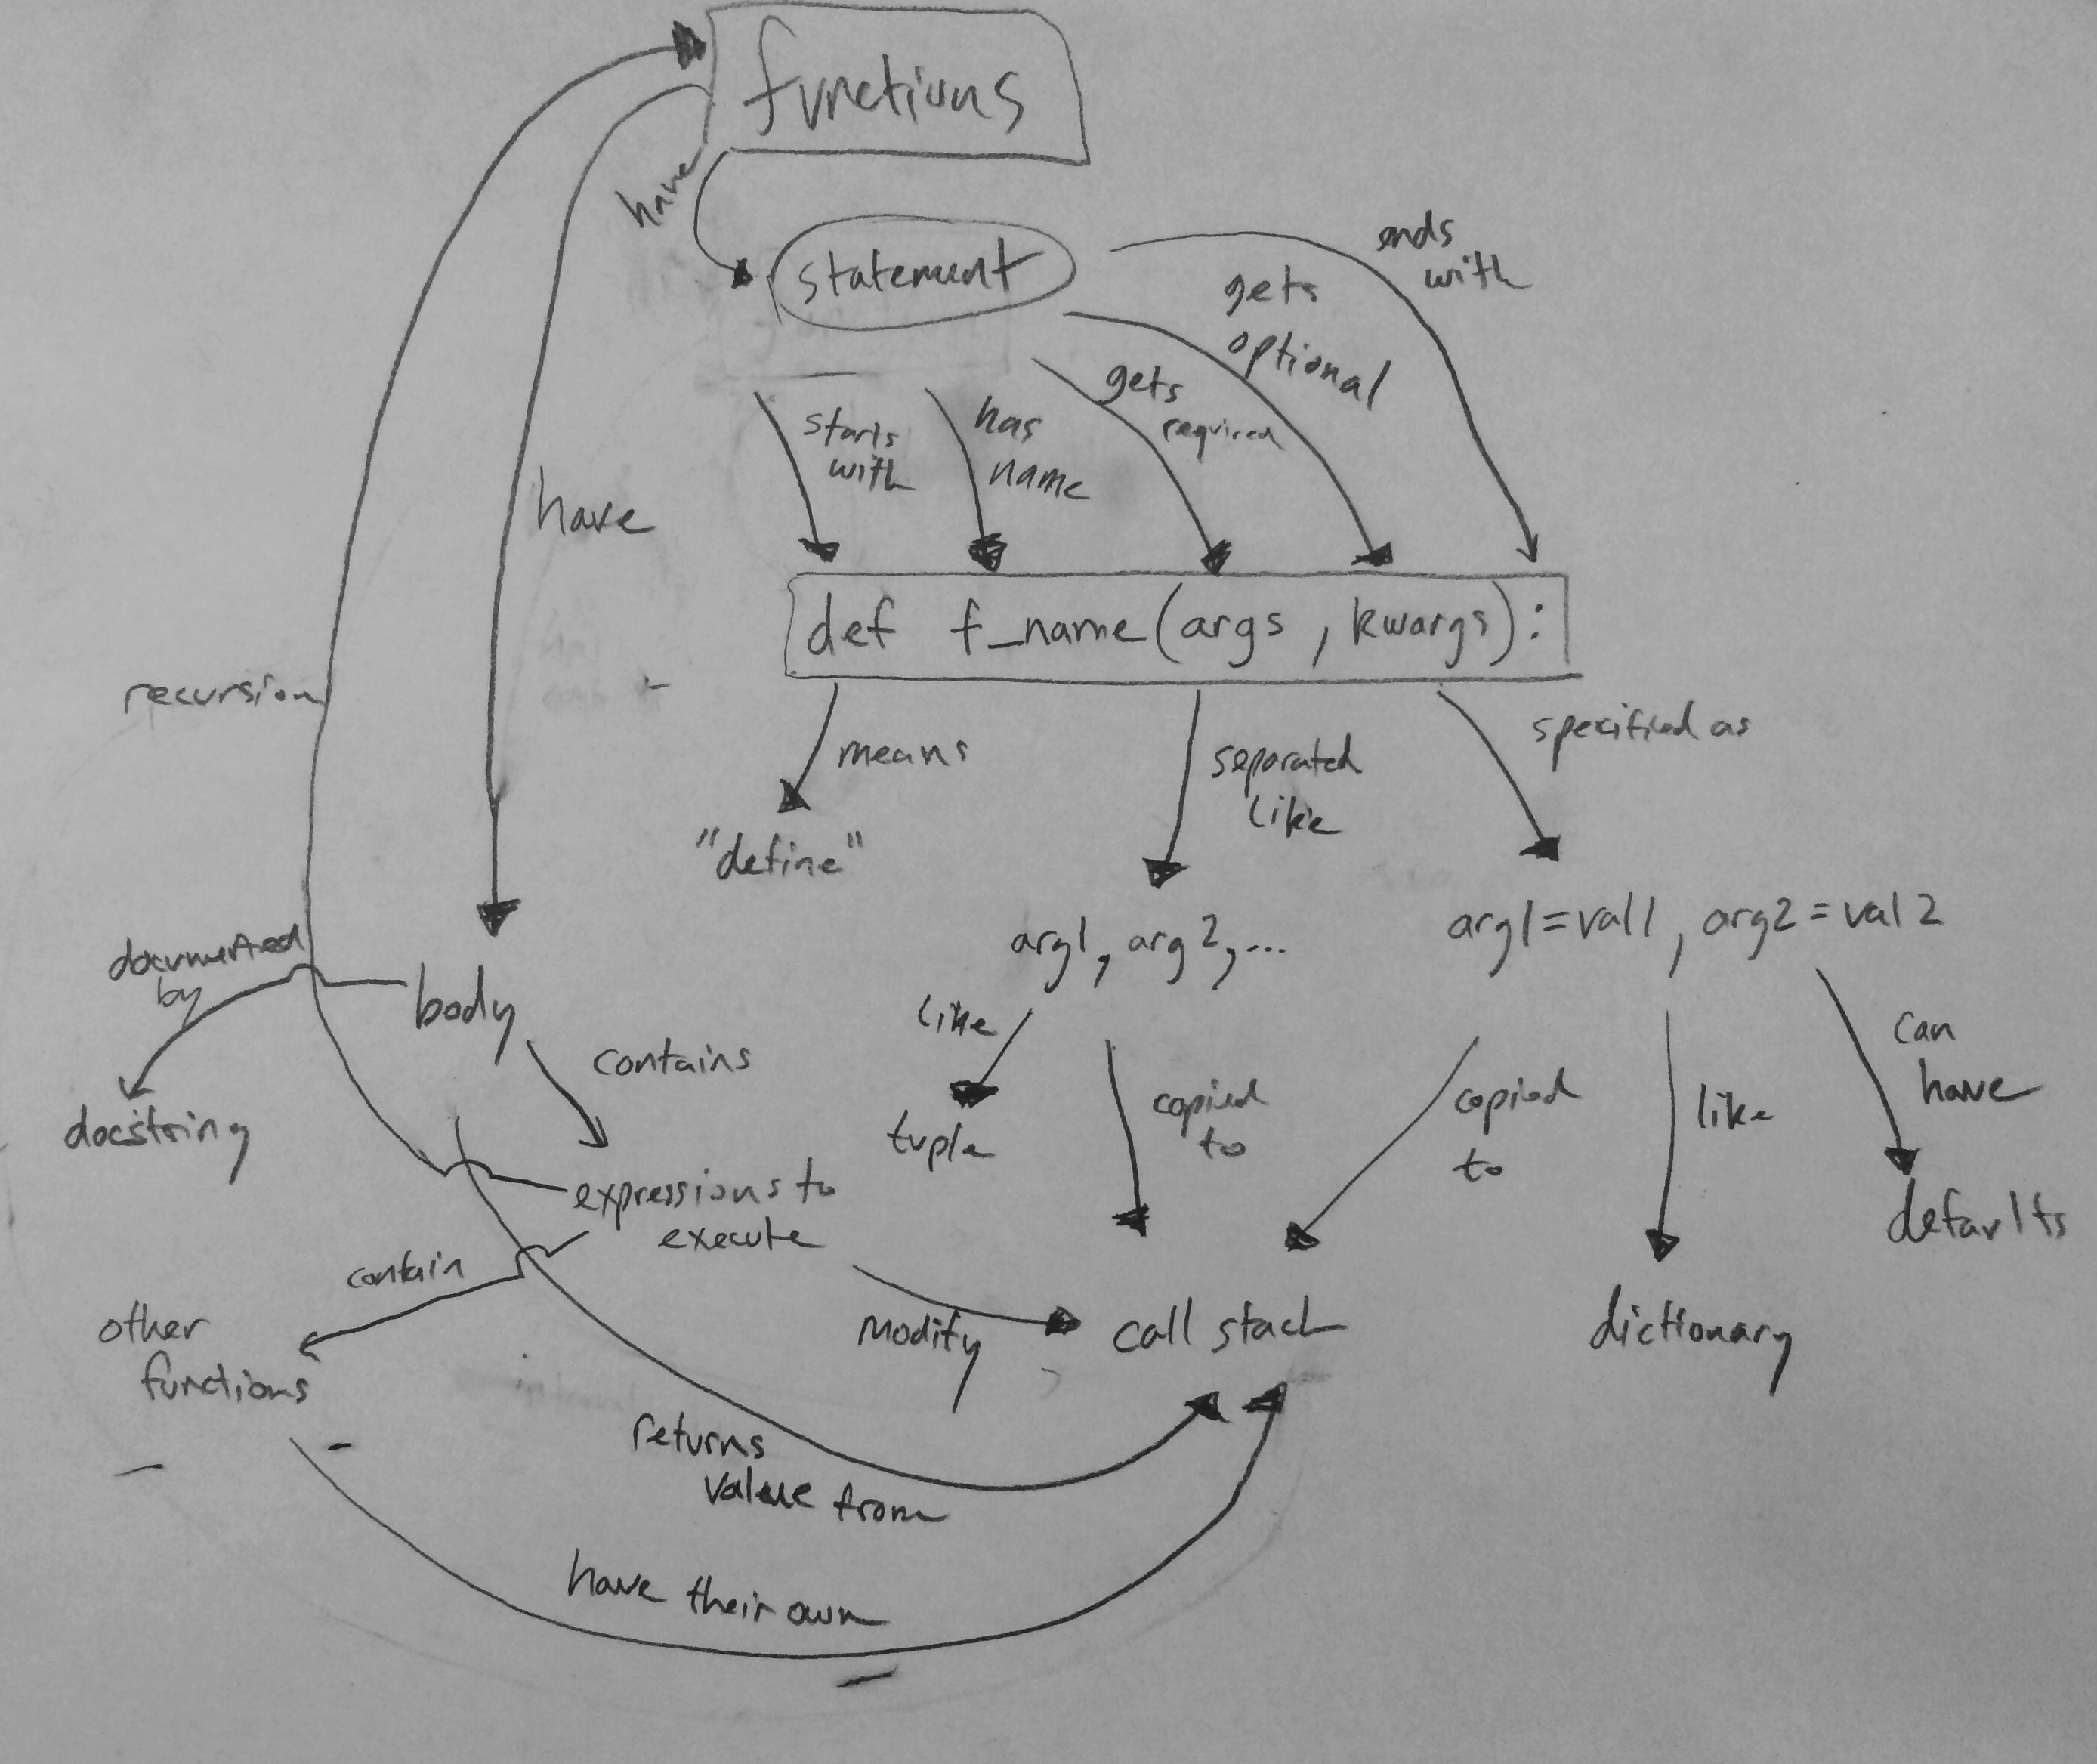 functions
have
statement
ends
with
gets
optional
gets
required
has
name
starts
with
have
def f_name(args, kwargs):
recursion
means
separated
like
specified as
"define"
arg1, arg2,...
arg1=val1, arg2=val2
documented
by
body
like
can
have
contains
copied
to
copied
to
like
docstring
tuple
expressions to
execute
defaults
contain
other
functions
modify
call stack
dictionary
returns
value from
have their own